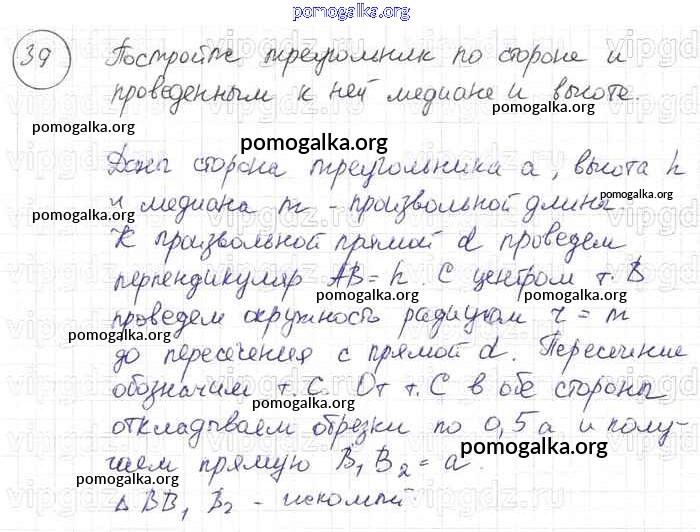 pomogalka.org
39 Постройте треугольник по стороне и
проведенным к ней медиане и высоте.
pomogalka.org
pomogalka.org
Даны сторона треугольника a, высота h
pomogalka.org
и медиана m - произвольной длины.
pomogalka.org
К произвольной прямой d проведем
перпендикуляр AB = h. С центром т. B
pomogalka.org pomogalka.org
проведем окружность радиусом r = m
pomogalka.org
до пересечения с прямой d. Пересечение
обозначим т. C. От т. C в обе стороны
pomogalka.org
откладываем отрезки по 0,5a и полу-
pomogalka.org
чаем прямую B₁B₂ = a.
pomogalka.org
Δ BB₁B₂ - искомый